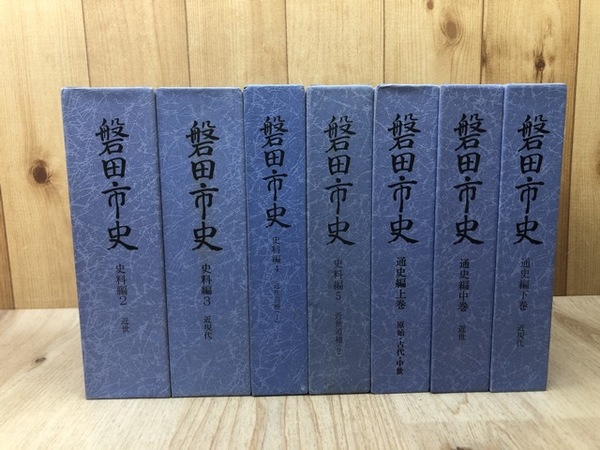 磐田市史
史料編2 近世
磐田市史
史料編3 近現代
磐田市史
史料編4 近世追補1
磐田市史
史料編5 近世追補2
磐田市史
通史編上巻 原始・古代・中世
磐田市史
通史編中巻 近世
磐田市史
通史編下巻 近現代